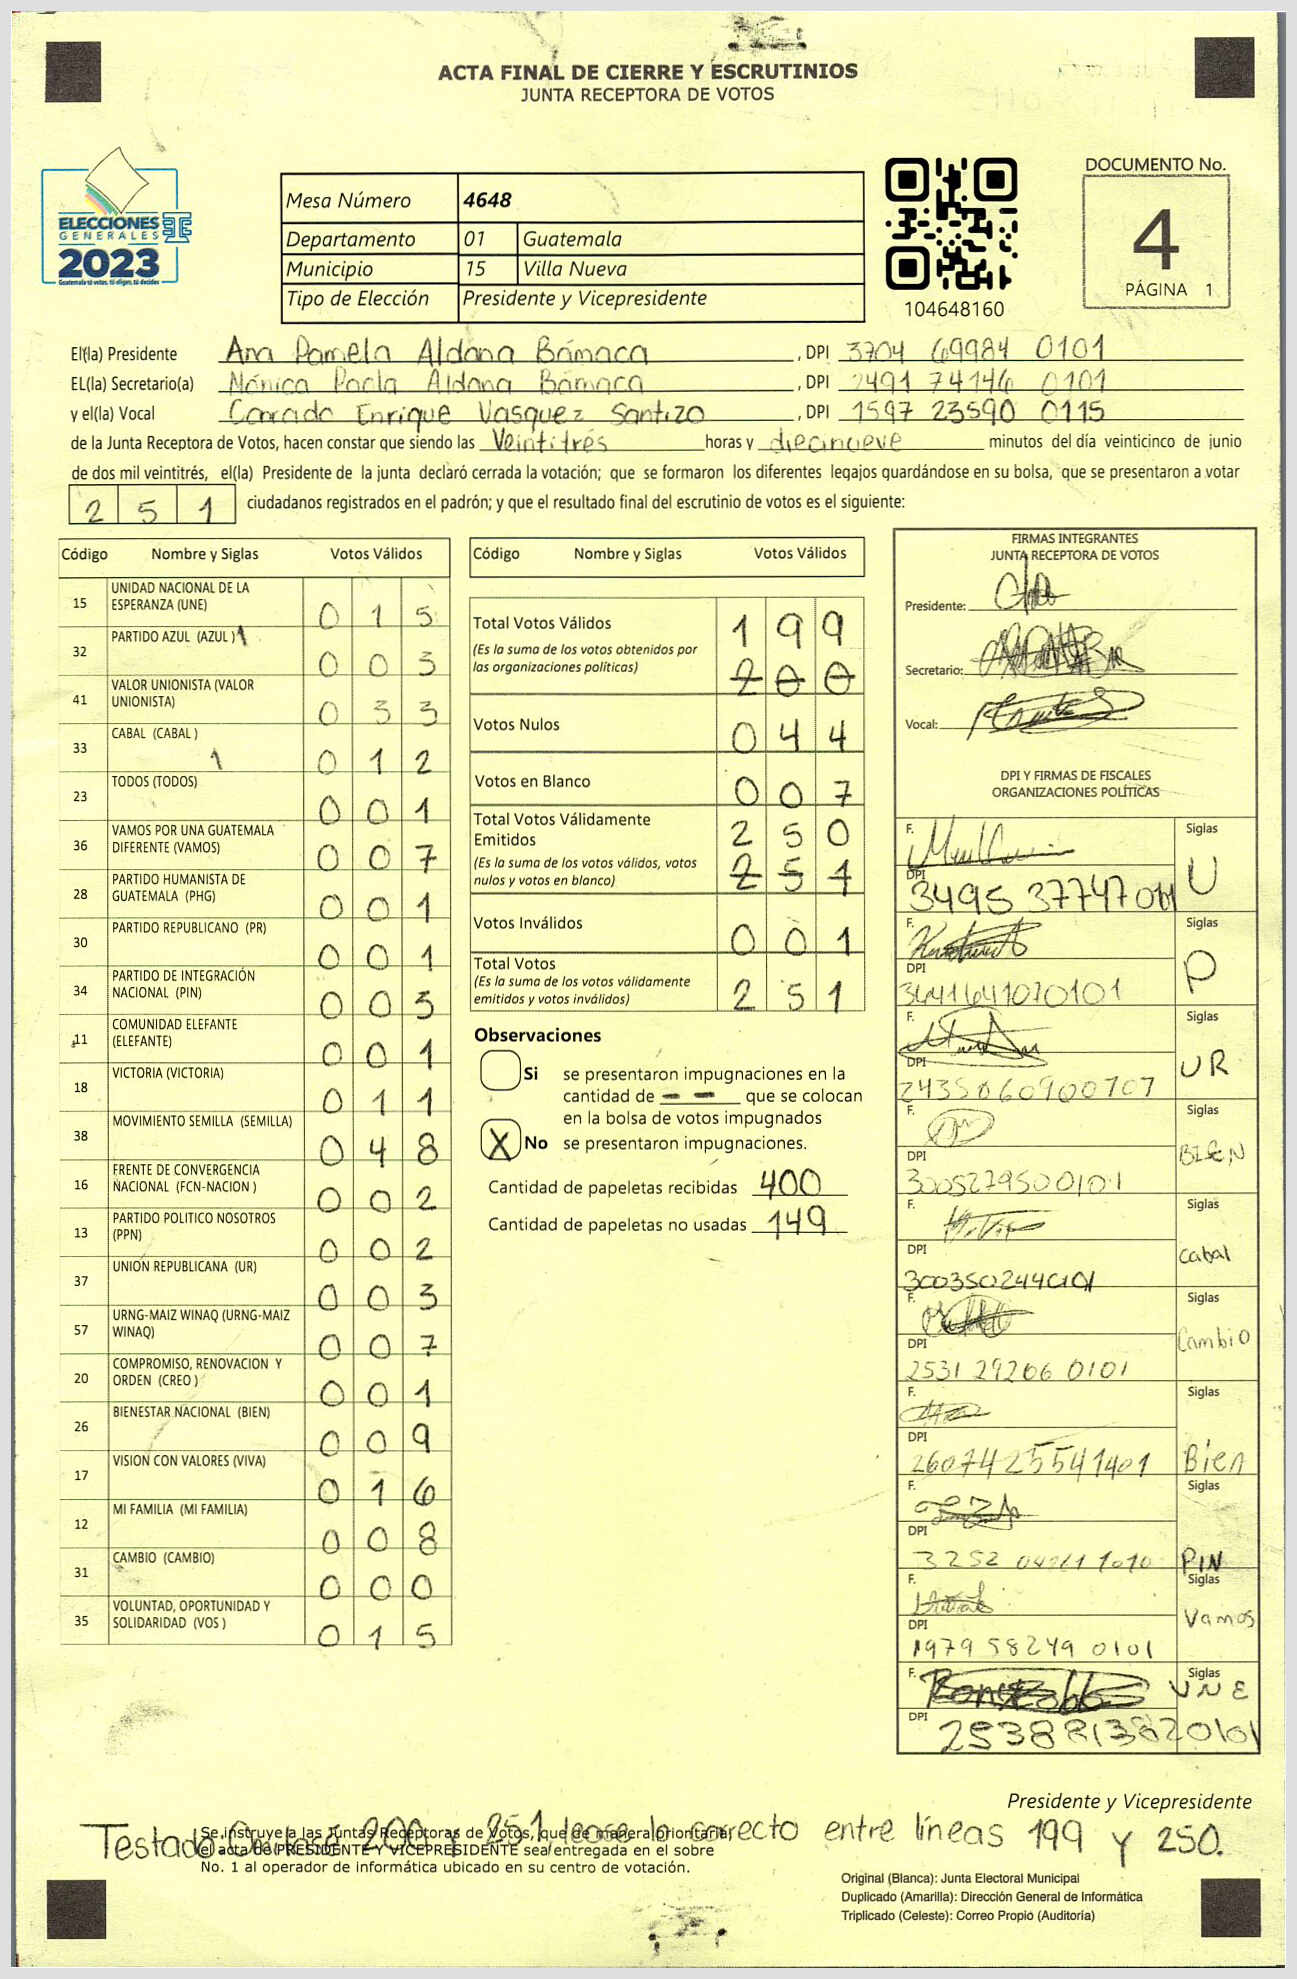 ACTA FINAL DE CIERRE Y ESCRUTINIOS
JUNTA RECEPTORA DE VOTOS
ELECCIONES
GENERALES
2023
Guatemala tú votas, tú eliges, tú decides
TSE
Mesa Número 4648
Departamento 01 Guatemala
Municipio 15 Villa Nueva
Tipo de Elección Presidente y Vicepresidente
104648160
DOCUMENTO No.
4
PÁGINA 1
El(la) Presidente Ana Pamela Aldana Bámaca, DPI 3704 69984 0101
EL(la) Secretario(a) Mónica Paola Aldana Bámaca, DPI 2491 74146 0101
y el(la) Vocal Conrado Enrique Vasquez Santizo, DPI 1597 23590 0115
de la Junta Receptora de Votos, hacen constar que siendo las Veintitrés horas y diecinueve minutos del día veinticinco de junio
de dos mil veintitrés, el(la) Presidente de la junta declaró cerrada la votación; que se formaron los diferentes legajos guardándose en su bolsa, que se presentaron a votar
2 5 1 ciudadanos registrados en el padrón; y que el resultado final del escrutinio de votos es el siguiente:
Código Nombre y Siglas Votos Válidos
15 UNIDAD NACIONAL DE LA ESPERANZA (UNE) 0 1 5
32 PARTIDO AZUL (AZUL) 0 0 3
41 VALOR UNIONISTA (VALOR UNIONISTA) 0 3 3
33 CABAL (CABAL) 0 1 2
23 TODOS (TODOS) 0 0 1
36 VAMOS POR UNA GUATEMALA DIFERENTE (VAMOS) 0 0 7
28 PARTIDO HUMANISTA DE GUATEMALA (PHG) 0 0 1
30 PARTIDO REPUBLICANO (PR) 0 0 1
34 PARTIDO DE INTEGRACIÓN NACIONAL (PIN) 0 0 3
11 COMUNIDAD ELEFANTE (ELEFANTE) 0 0 1
18 VICTORIA (VICTORIA) 0 1 1
38 MOVIMIENTO SEMILLA (SEMILLA) 0 4 8
16 FRENTE DE CONVERGENCIA NACIONAL (FCN-NACION) 0 0 2
13 PARTIDO POLITICO NOSOTROS (PPN) 0 0 2
37 UNION REPUBLICANA (UR) 0 0 3
57 URNG-MAIZ WINAQ (URNG-MAIZ WINAQ) 0 0 7
20 COMPROMISO, RENOVACION Y ORDEN (CREO) 0 0 1
26 BIENESTAR NACIONAL (BIEN) 0 0 9
17 VISION CON VALORES (VIVA) 0 1 6
12 MI FAMILIA (MI FAMILIA) 0 0 8
31 CAMBIO (CAMBIO) 0 0 0
35 VOLUNTAD, OPORTUNIDAD Y SOLIDARIDAD (VOS) 0 1 5
Código Nombre y Siglas Votos Válidos
Total Votos Válidos 1 9 9
(Es la suma de los votos obtenidos por
las organizaciones políticas) 2 0 0
Votos Nulos 0 4 4
Votos en Blanco 0 0 7
Total Votos Válidamente
Emitidos 2 5 0
(Es la suma de los votos válidos, votos
nulos y votos en blanco) 2 5 1
Votos Inválidos 0 0 1
Total Votos
(Es la suma de los votos válidamente
emitidos y votos inválidos) 2 5 1
Observaciones
Si se presentaron impugnaciones en la
cantidad de - - que se colocan
en la bolsa de votos impugnados
X No se presentaron impugnaciones.
Cantidad de papeletas recibidas 400
Cantidad de papeletas no usadas 149
FIRMAS INTEGRANTES
JUNTA RECEPTORA DE VOTOS
Presidente:
Secretario:
Vocal:
DPI Y FIRMAS DE FISCALES
ORGANIZACIONES POLÍTICAS
F. Siglas U
DPI 3495 37747 0101
F. Siglas P
DPI 3441641070101
F. Siglas UR
DPI 2435060900707
F. Siglas BIEN
DPI 3005279500101
F. Siglas Cabal
DPI 3003502440101
F. Siglas Cambio
DPI 2531 29206 0101
F. Siglas Bien
DPI 2607425541401
F. Siglas PIN
DPI 3252
F. Siglas Vamos
DPI 1979 58249 0101
F. Siglas UNE
DPI 2538813820101
Presidente y Vicepresidente
Testado Omítase 200 y 251, lease lo correcto entre líneas 199 y 250.
Se instruye a las Juntas Receptoras de Votos, que de manera prioritaria,
el acta de PRESIDENTE Y VICEPRESIDENTE sea entregada en el sobre
No. 1 al operador de informática ubicado en su centro de votación.
Original (Blanca): Junta Electoral Municipal
Duplicado (Amarilla): Dirección General de Informática
Triplicado (Celeste): Correo Propio (Auditoría)